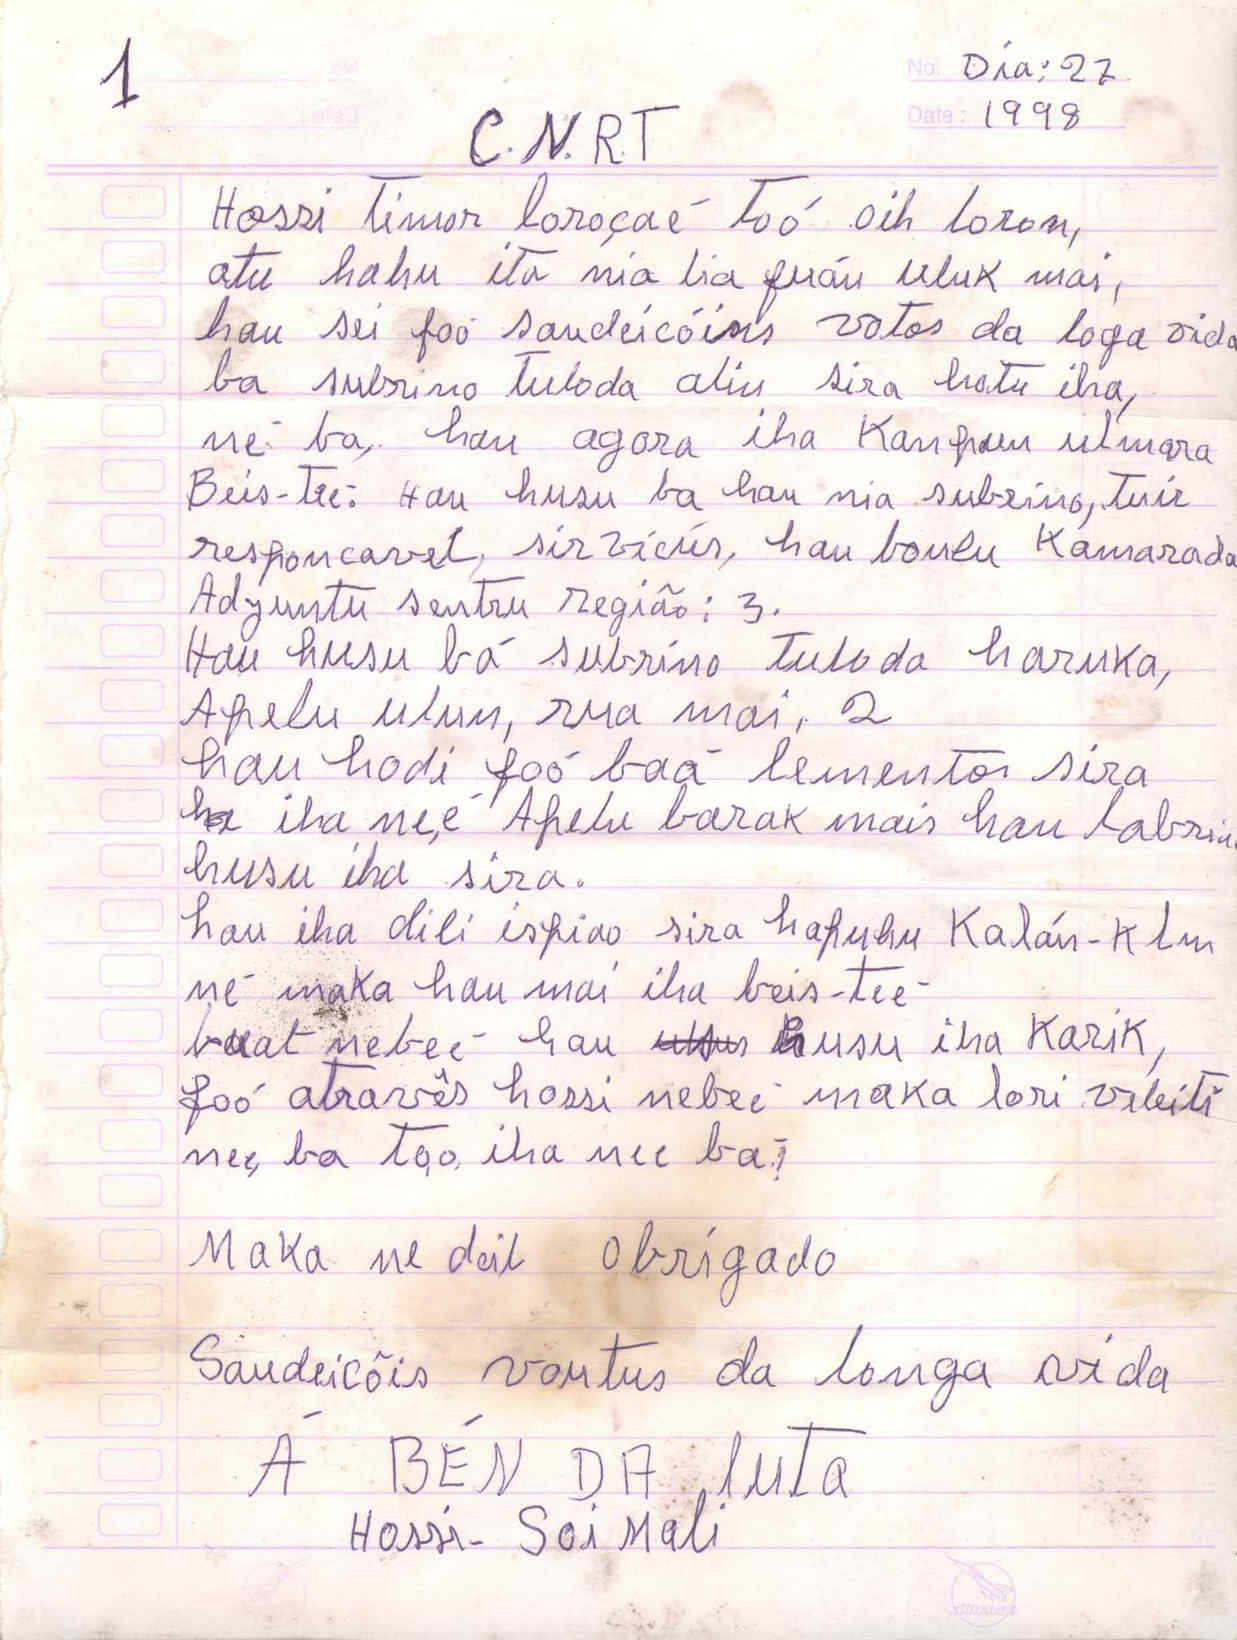 1
No. Día: 27
Date: 1998
C.N.R.T
Hossi timor loroçaé toó oih loron,
atu hahu ita nia lia fuán uluk mai,
hau sei foó saudeicóins votos da loga vida
ba subrino tuloda alin sira hotu iha,
né ba, hau agora iha Kanpun ulmara
Beis-Tee: Hau husu ba hau nia subrino, tuir
responcavel, sirvicús, hau bonlu Kamarada
Adyuntu sentru região: 3.
Hau husu bá subrino tuloda haruka,
Apelu ulun, rua mai, 2
hau hodi foó baá lementos sira
iha neé Apelu barak mais hau labrin
husu iha sira.
hau iha dili ispiao sira hapuhu Kalán-Klun
né maka hau mai iha beis-teé
buat nebeé hau husu iha Karik,
foó através hossi nebeé maka lori vileiti
nee, ba too, iha nee ba!
Maka ne deit obrígado
Saudeicõis voutus da longa vida
Á BÉN DA luta
Hossi- Soi Mali